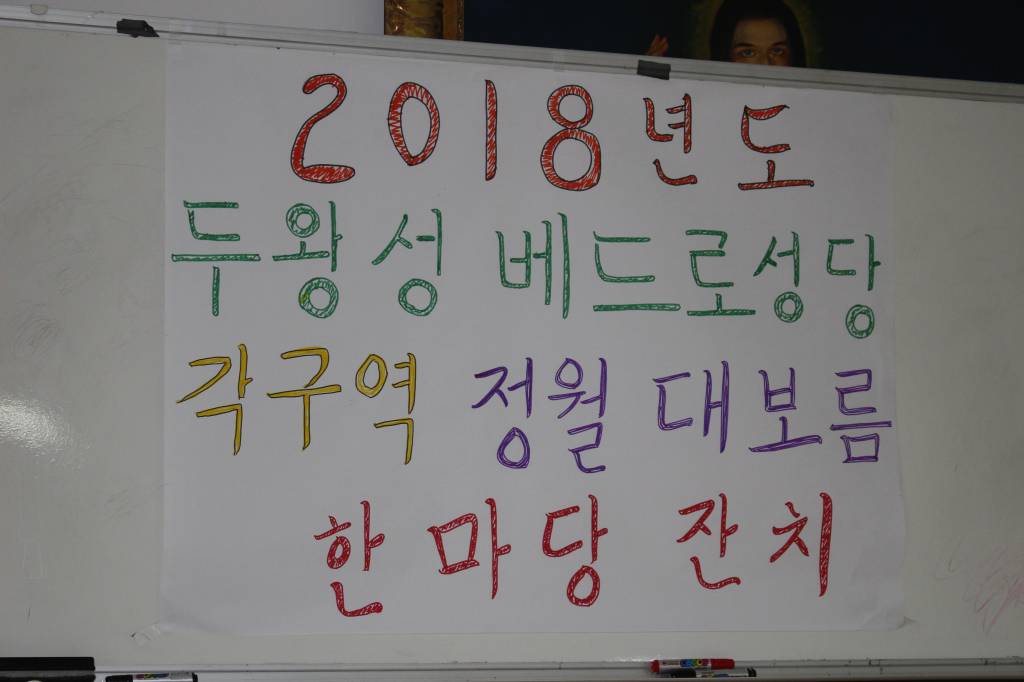 2018년도
두왕성 베드로성당
각구역 정월 대보름
한마당 잔치